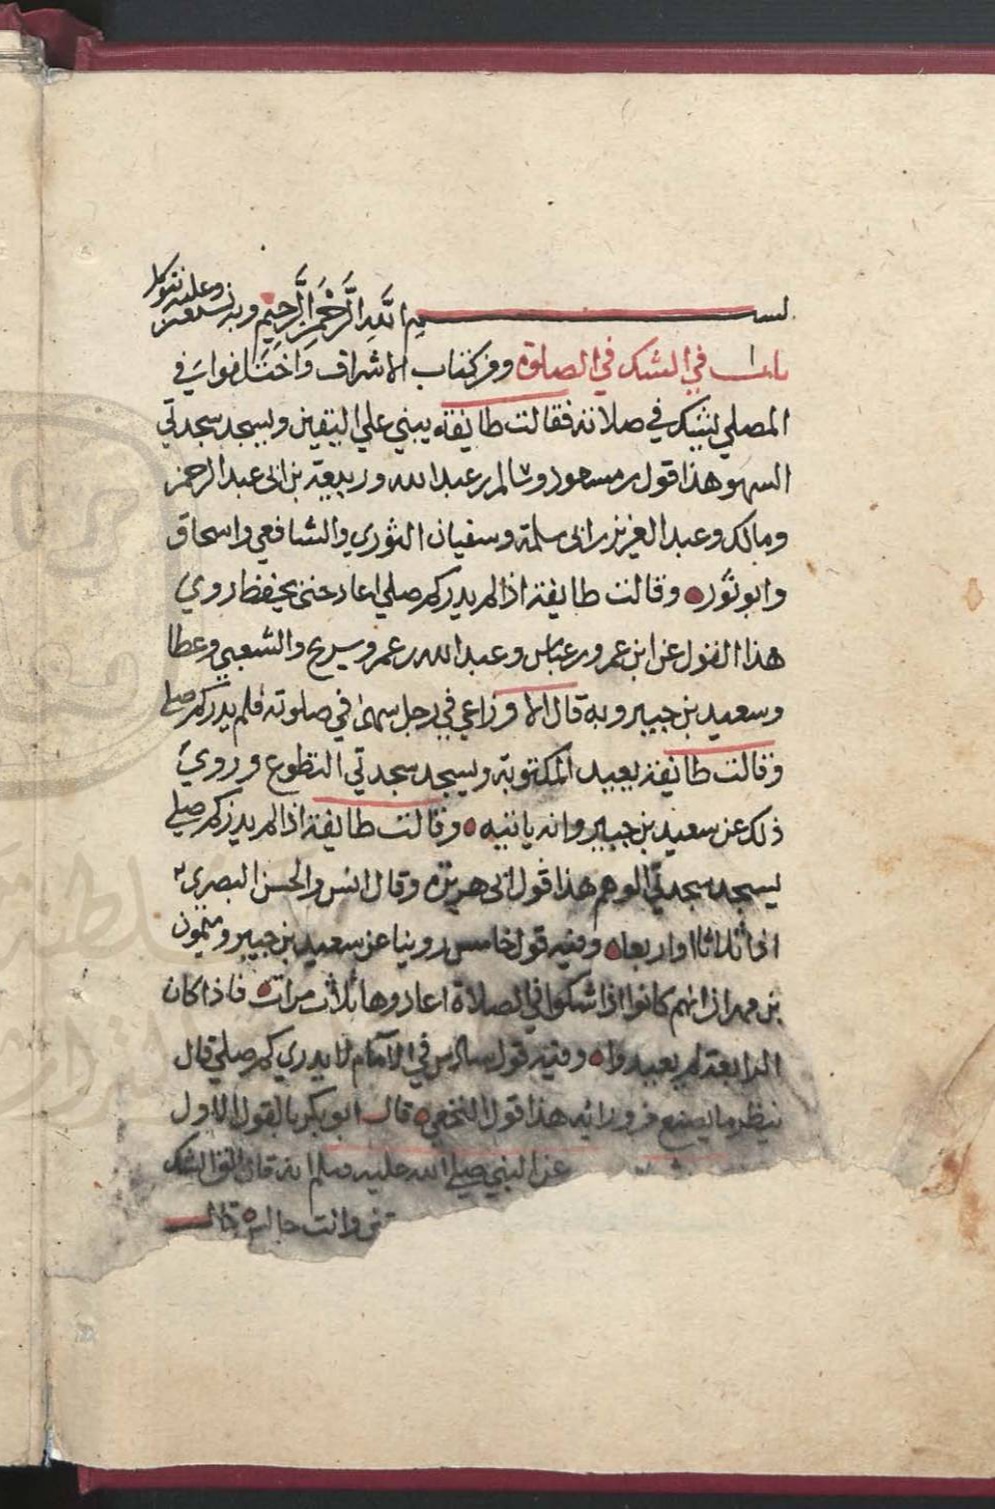 بسم الله الرحمن الرحيم وبه نستعين وعليه نتوكل
باب في الشك في الصلوة ومن كتاب الاشراف واختلفوا في
المصلي يشك في صلاته فقالت طايفة يبني علي اليقين ويسجد سجدتي
السهو هذا قول بن مسعود وسالم بن عبد الله وربيعة بن ابي عبد الرحمن
ومالك وعبد العزيز بن ابي سلمة وسفيان الثوري والشافعي واسحاق
وابو ثور وقالت طايفة اذا لم يدر كم صلي اعاد حتى يحفظ روي
هذا القول عن ابن عمر وبن عباس وعبد الله بن عمرو وشريح والشعبي وعطا
وسعيد بن جبير وبه قال الاوزاعي في رجل سهى في صلوته فلم يدر كم صلي
وقالت طايفة يعيد المكتوبة ويسجد سجدتي التطوع وروي
ذلك عن سعيد بن جبير وانه ياتيه وقالت طايفة اذا لم يدر كم صلي
يسجد سجدتي الوهم هذا قول ابي هريرة وقال انس والحسن البصري
اثلاثا او اربعا وفيه قول خامس روينا عن سعيد بن جبير وميمون
بن مهران انهم كانوا اذا شكوا في الصلاة اعادوها ثلاث مرات فاذا كان
الرابعة لم يعيدوا وفيه قول سادس في الامام لا يدري كم صلي قال
ينظر ما يصنع من ورائه هذا قول النخعي قال ابو بكر بالقول الاول
عن النبي صلي الله عليه وسلم انه قال الق الشك
وانت جالس قال